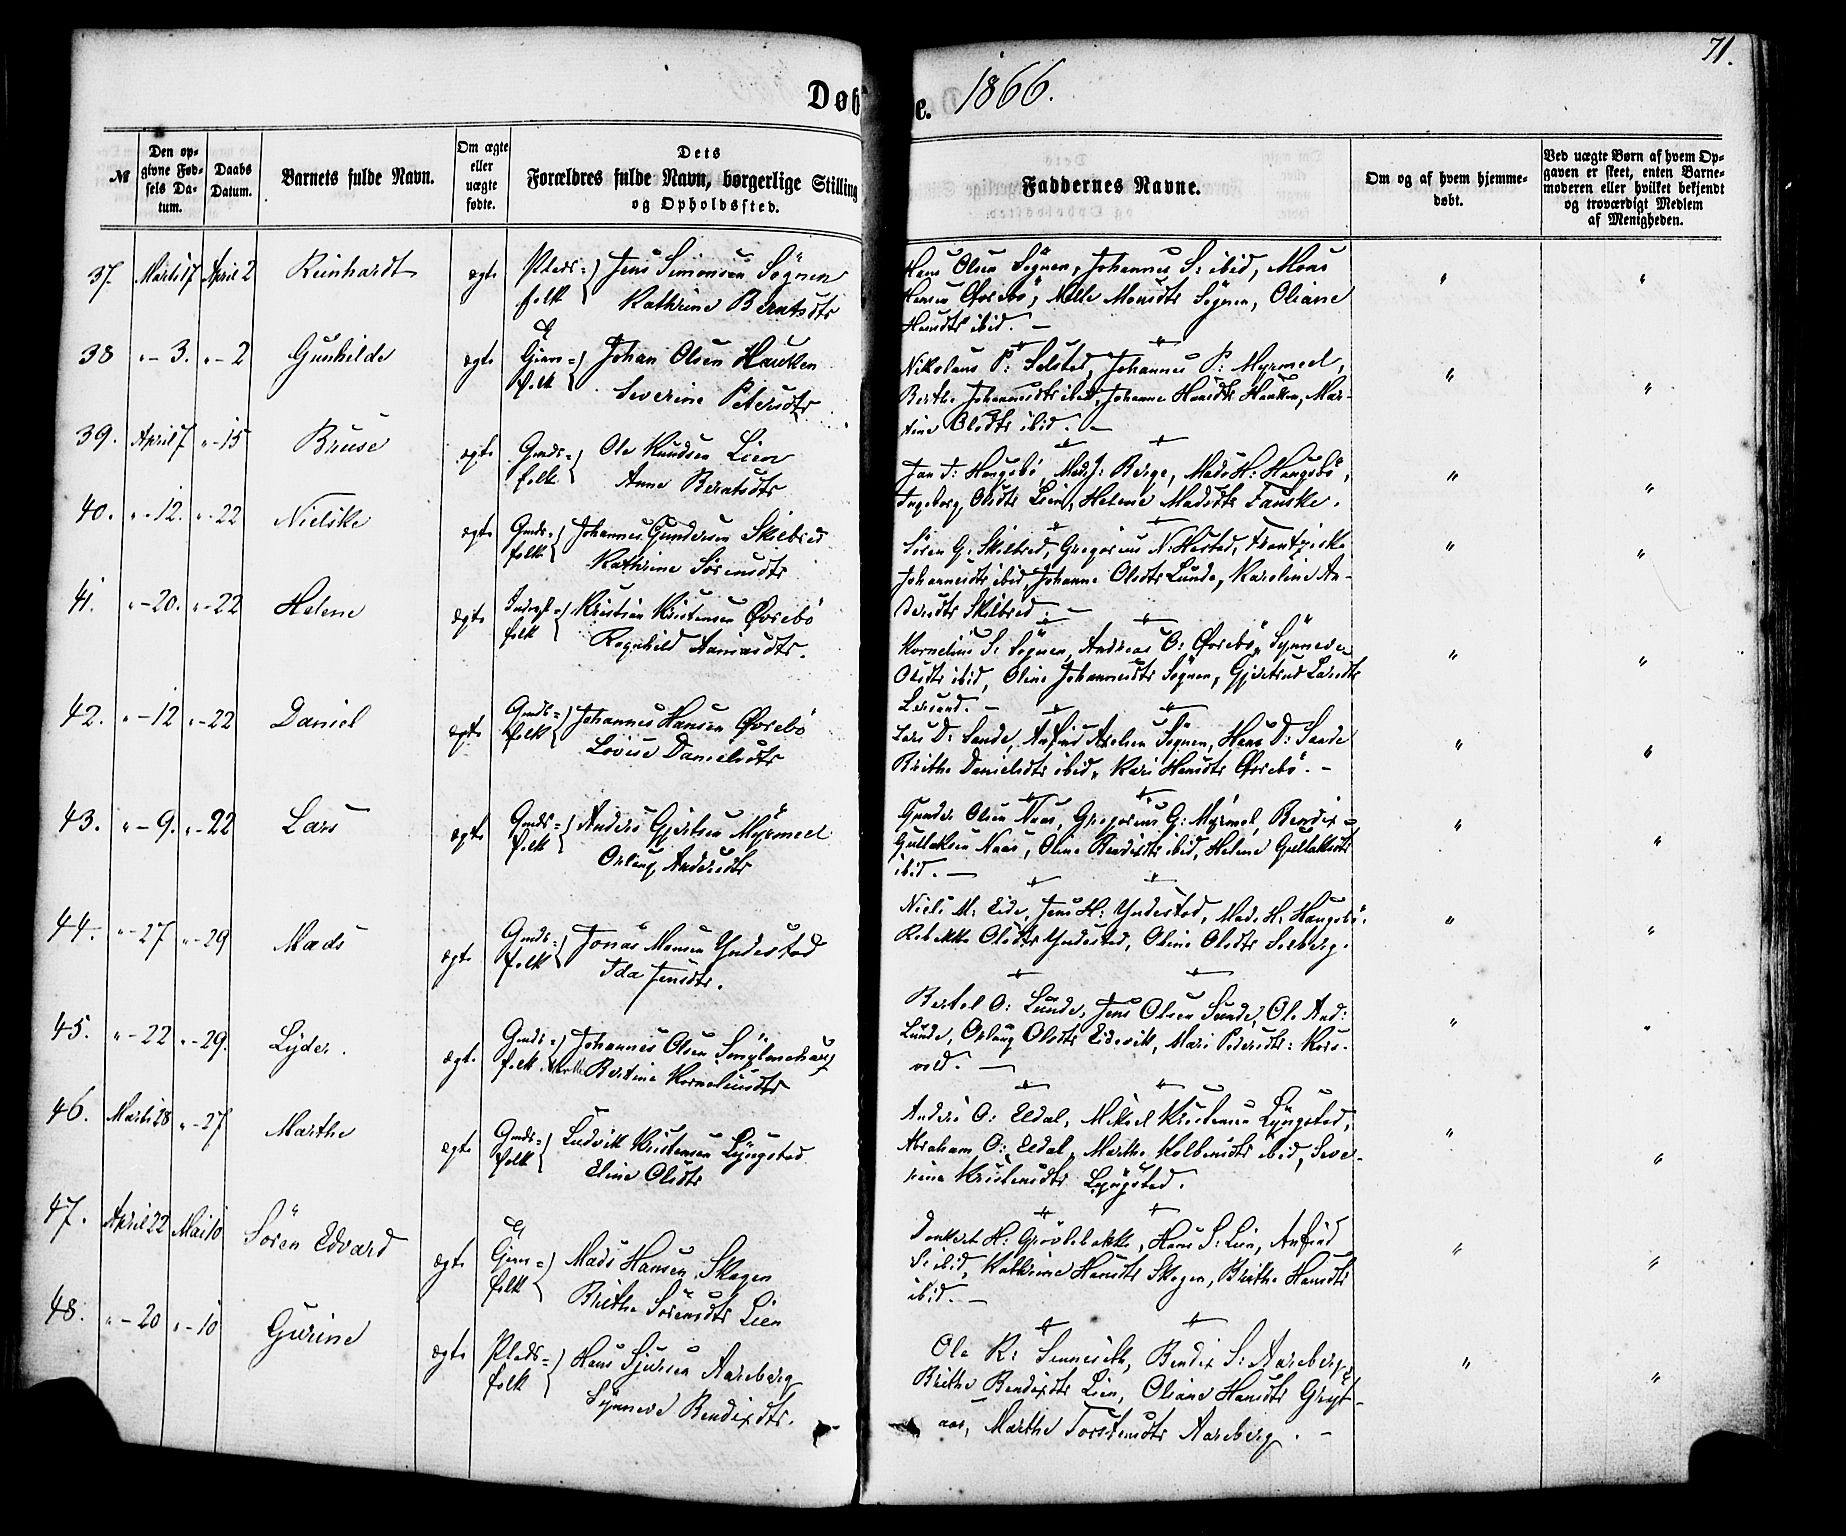 71.
Døbte. 1866.
№
Den opgivne Fødsels Datum.
Daabs Datum.
Barnets fulde Navn.
Om ægte eller uægte fødte.
Dets Forældres fulde Navn, borgerlige Stilling og Opholdssted.
Faddernes Navne.
Om og af hvem hjemmedøbt.
Ved uægte Børn af hvem Opgaven er skeet, enten Barnemoderen eller hvilket bekjendt og troværdigt Medlem af Menigheden.
37. Marts 17 April 2 Reinhardt ægte Plads=folk { Jens Simonsen Sögnen
Kathrine Berntsdtr
Hans Olsen Sögnen, Johannes S: ibid, Mons
Hansen Øvrebö, Nille Monsdtr Sögnen, Oliane
Hansdtr ibid. —
38 „ - 3. „ - 2 Gunhilde ægte Gjem=folk { Johan Olsen Hauken
Severine Petersdtr
Nikolaus P: Selstad, Johannes P: Myrmeel,
Berthe Johannesdtr ibid, Johanne Hansdtr Hauken, Mar-
tine Olsdtr ibid. —
39. April 7 „ - 15 Bruse ægte Gmds=folk { Ole Knudsen Lien
Anne Berntsdtr
Jan J: Haugsbö, Mads J: Berge, Mads H: Haugsbö,
Ingeborg Olsdtr Lien, Helene Madsdtr Fauske.
40. „ - 12. „ - 22 Nielske ægte Gmds=folk { Johannes Gundersen Skilbred
Kathrine Sörensdtr
Sören G: Skilbred, Gregorius N: Hestad, Frantziska
Johannesdtr ibid, Johanne Olsdtr Lunde, Karoline An-
dersdtr Skilbred. —
41. „ - 20. „ - 22 Helene ægte Inderst=folk { Kristian Kristensen Øvrebö
Ragnhild Aamundsdtr.
Kornelius S: Sögnen, Andreas O: Øvrebö, Synneve
Olsdtr ibid, Oline Johannesdtr Sögnen, Gjertrud Larsdtr
42. „ - 12 „ - 22 Daniel ægte Gmds=folk { Johannes Hansen Øvrebö
Lovise Danielsdtr
Lars D: Sande, Anfind Axelsen Sögnen, Hans D: Sande
Brithe Danielsdtr ibid, Kari Hansdtr Øvrebö. —
43. „ - 9. „ - 22 Lars ægte Gmds=folk { Anders Gjertsen Myrmeel
Orlaug Andersdtr
Gunder Olsen Naas, Gregorius G: Myrmel, Bendix
Gullaksen Naas, Oline Bendixdtr ibid, Helene Gullaksdtr
ibid. —
44. „ - 27 „ - 29 Mads ægte Gmds=folk { Jonas Monsen Yndestad
Ida Jensdtr.
Niels M: Eide, Jens H: Yndestad, Mads H: Haugsbö.
Rebekke Olsdtr Yndestad, Oline Olsdtr Solberg.
45. „ - 22 „ - 29. Lyder. ægte. Gmds=folk { Johannes Olsen Smylmehaug
Bertine Korneliusdtr
Bertel O: Lunde, Jens Olsen Lunde, Ole And:
Lunde, Orlaug Olsdtr Eidevik, Mari Pedersdtr: Kors-
vold. —
46. Marts 28 „ - 27 Marthe ægte Gmds=folk { Ludvik Kristensen Lyngstad
Eline Olsdtr
Anders O: Eldal, Mikael Kristensen Lyngstad,
Abraham O: Eldal, Marthe Kolbensdtr ibid, Seve-
rine Kristensdtr Lyngstad.
47. April 22 Mai 10 Sören Edvard ægte Gjem=folk { Mads Hansen Skogen
Brithe Sörensdtr Lien
Donkert H: Grövlebakke, Hans S: Lien, Anfind
S: ibid, Kathrine Hansdtr Skogen, Brithe Hansdtr
ibid. —
48. „ - 20 „ - 10 Gurine ægte Plads=folk { Hans Sjursen Aareberg
Synneve Bendixdtr.
Ole R: Sunnesvik, Bendix S: Aareberg,
Brithe Bendixdtr Lien, Oliane Hansdtr Gryt-
aas, Marthe Torstensdtr Aareberg. —